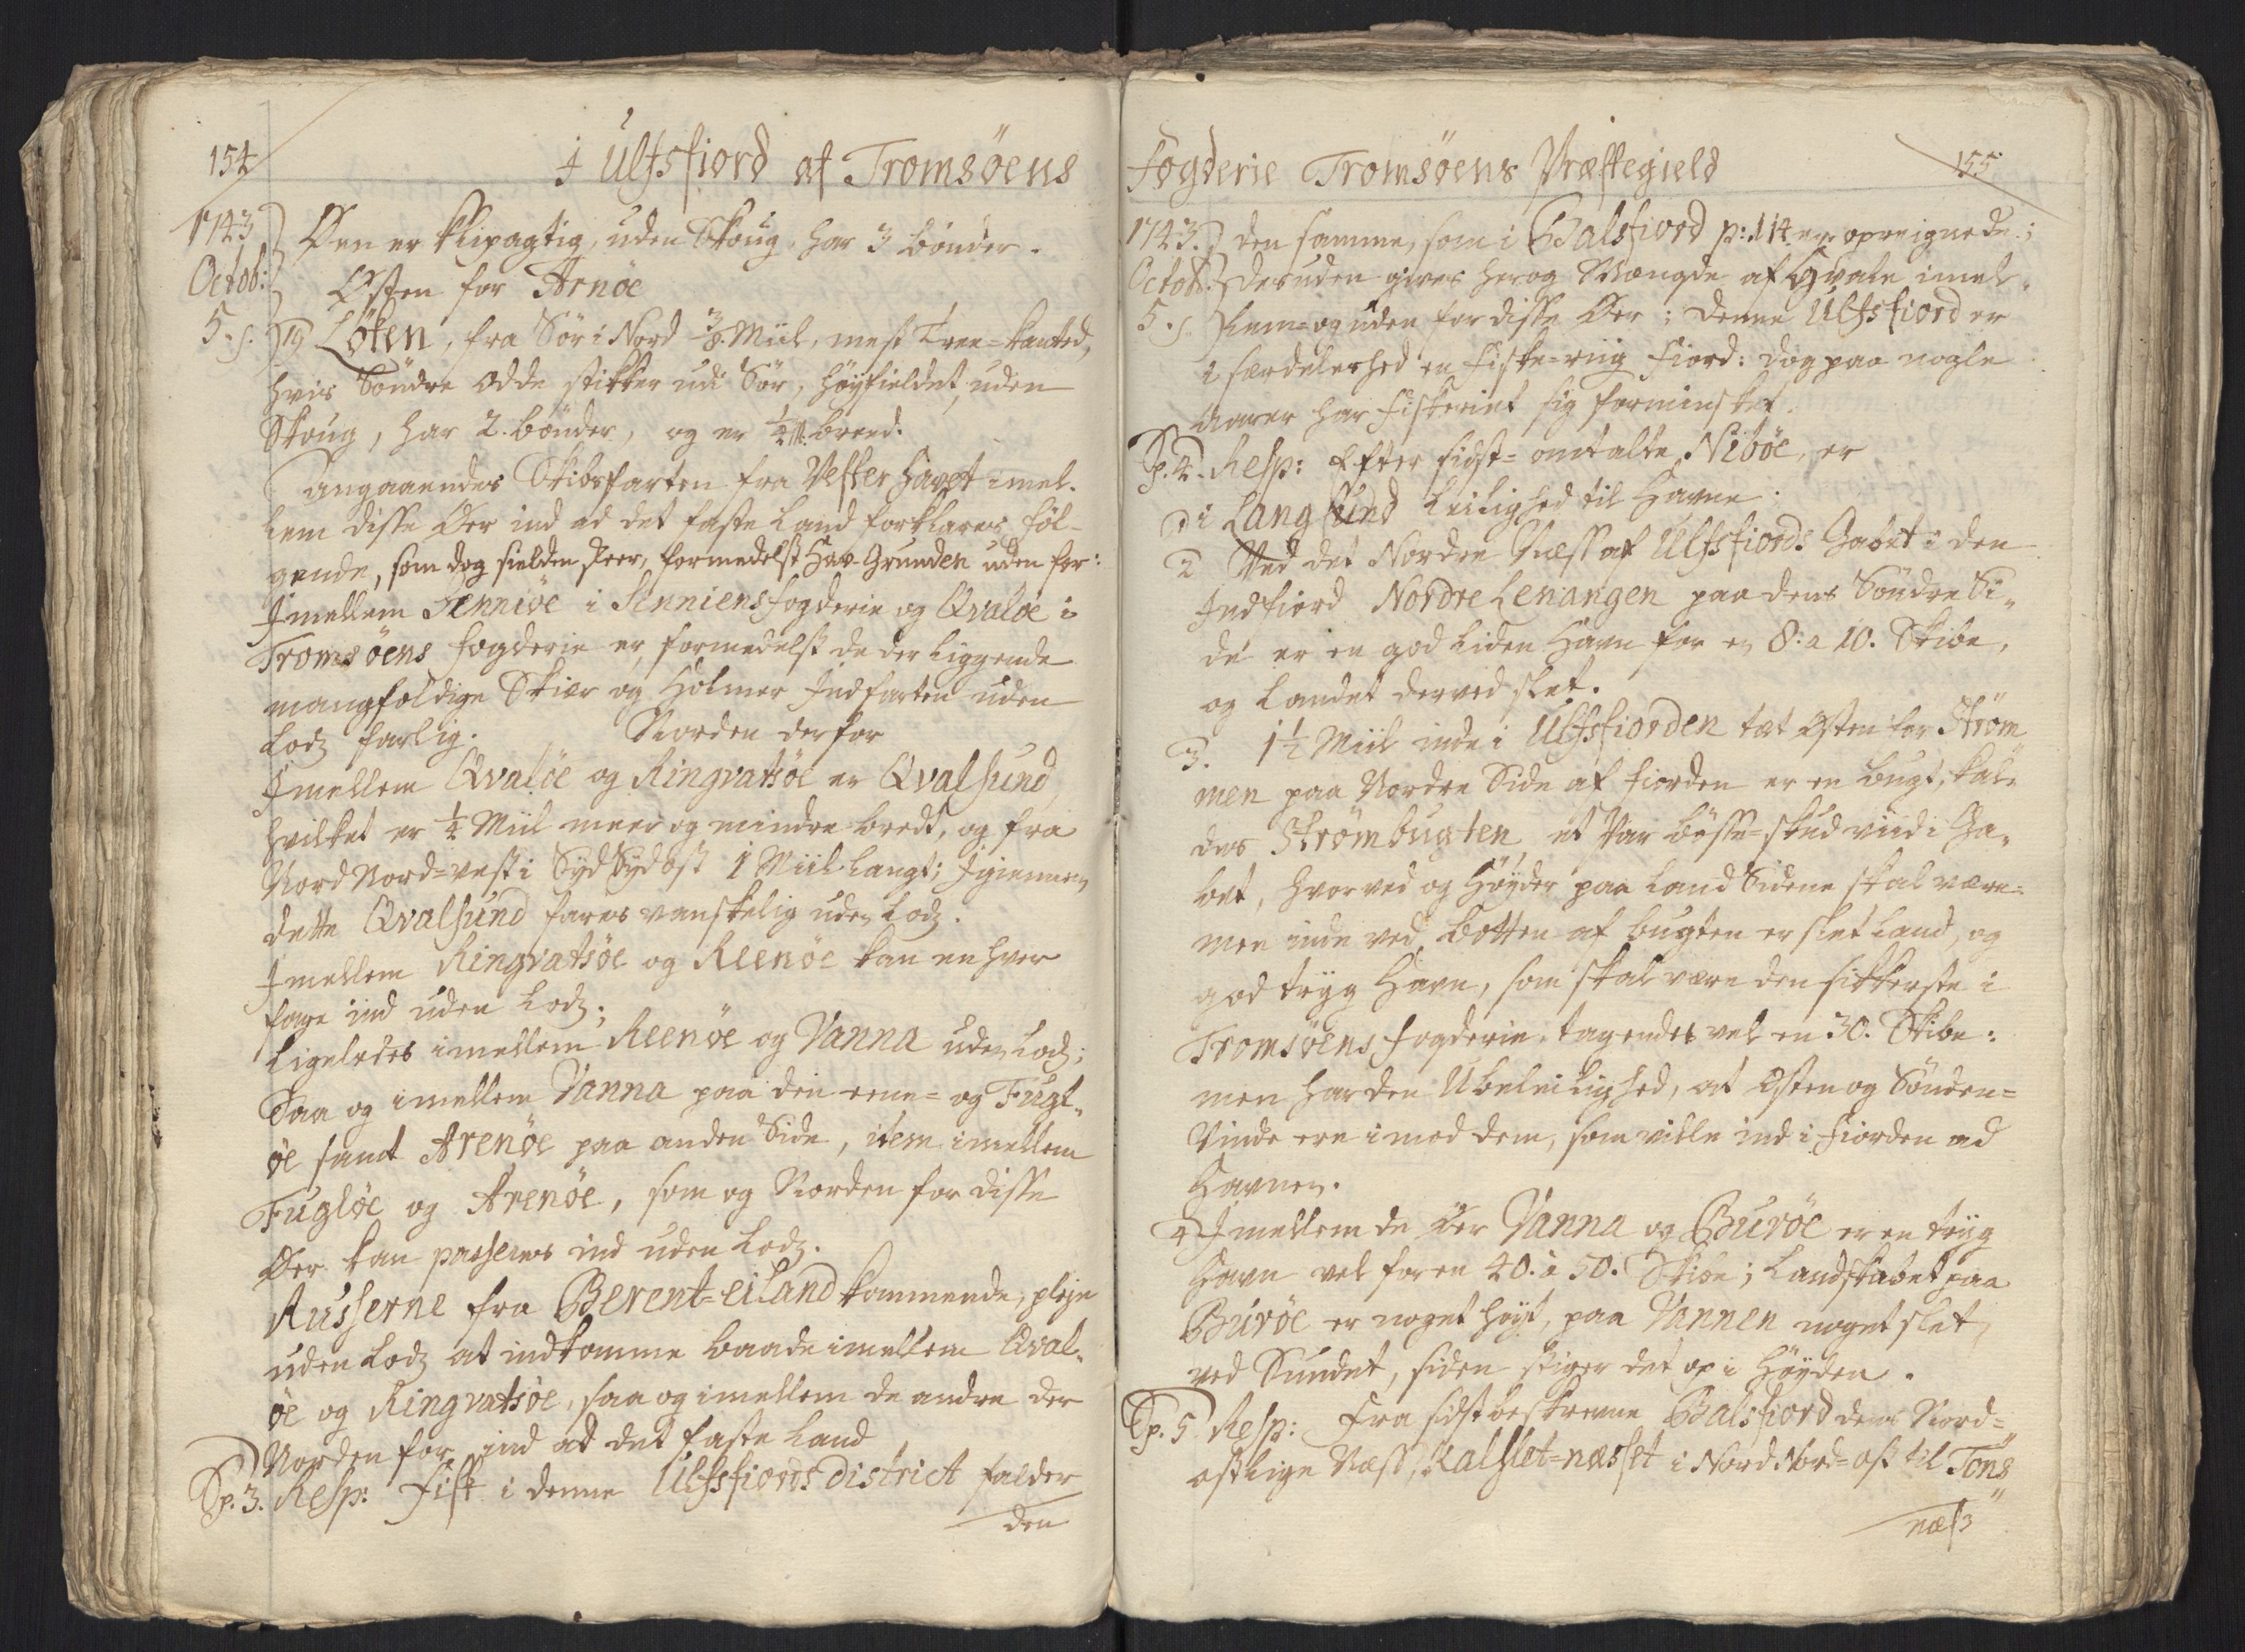 154
I Ulfsfiord af Tromsöens
1743
Octob:
5. s.
Øen er klipagtig, uden Skoug, har 3 bönder.
Østen for Arnöe
19 Löken, fra Sör i Nord 3/8. Miil, mest Tree-kanted,
hvis Söndre Odde stikker udi Sör, höyfieldet, uden
Skoug, har 2. bönder, og er 1/4 M. breed.
Angaaendes Skibsfarten fra Vester Havet imel-
lem disse Øer ind ad det faste Land forklares föl-
gende, som dog sielden skeer, formedelst Hav-Grunden uden for:
Imellem Senniöe i Senniens fogderie og Qvalöe i
Tromsöens fogderie er, formedelst de der liggende
mangfoldige Skiær og Holmer Indfarten uden
Lods farlig. Norden derfor
Imellem Qvalöe og Ringvatsöe er Qvalsund,
hvilket er 1/4 Miil meer og mindre bredt, og fra
Nord Nord-vest i Syd Sydost 1 Miil langt; Igiennem
dette Qvalsund fares vanskelig uden Lods.
Imellem Ringvatsöe og Reenöe kan en hver
fare ind uden Lods;
Ligeledes imellem Reenöe og Vanna uden Lods;
Saa og imellem Vanna paa den eene- og Fugl-
öe samt Arenöe paa anden Side, item imellem
Fuglöe og Arenöe, som og Norden for disse
Øer kan passeres ind uden Lods.
Russerne fra Berent-eiland kommende, pleje
uden Lods at indkomme baade imellem Qval-
öe og Ringvatsöe, saa og imellem de andre der
Norden for, ind ad det faste Land
Sp. 3. Resp: Fisk i denne Ulfsfiords District falder
den
Fogderie Tromsöens Præstegield
155
1743.
Octob:
5. s.
den samme, som i Balsfiord p: 114 er opreignede;
Desuden gives her og Mængde af Hvale imel-
lem- og uden for disse Øer; Denne Ulfsfiord er
i særdeleshed en Fiske-riig Fiord: dog paa nogle
Aarer har Fiskeriet sig forminsket.
Sp. 4. Resp: Efter sidst-omtalte Niböe, er
1 i Langsund Leilighed til Havne.
2 Ved det Nordre Næss af Ulfsfiords Gabet i den
Indfiord Nordre Lenangen paa dens Söndre Si-
de er en god liden Havn for en 8: a 10. Skibe,
og Landet derved slet.
3. 1 1/2 Miil inde i Ulfsfiorden tæt Østen for Ström-
men paa Nordre Side af Fiorden er en bugt, kal-
des Strömbugten et Par bösse-skud viid i Ga-
bet, hvorved og Höyder paa Land Siderne skal være
men inde ved Botten af bugten er slet Land, og
god tryg Havn, som skal være den sikkerste i
Tromsöens fogderie, tagendes vel en 30. Skibe:
men har den Ubeleilighed, at Østen og Sönden-
Vinde ere imod dem, som ville ind i Fiorden ad
Havnen.
4 Imellem de Øer Vanna og Buröe er en tryg
Havn vel for en 40. à 50. Skibe; Landskabet paa
Buröe er noget höyt, paa Vannen noget slet,
ved Sundet, siden stiger det op i Höyden.
Sp. 5. Resp: Fra sidst beskrevne Balsfiord dens Nord-
ostlige Næss, Kalslet-næsset i Nord Nord-ost til Töns-
næss